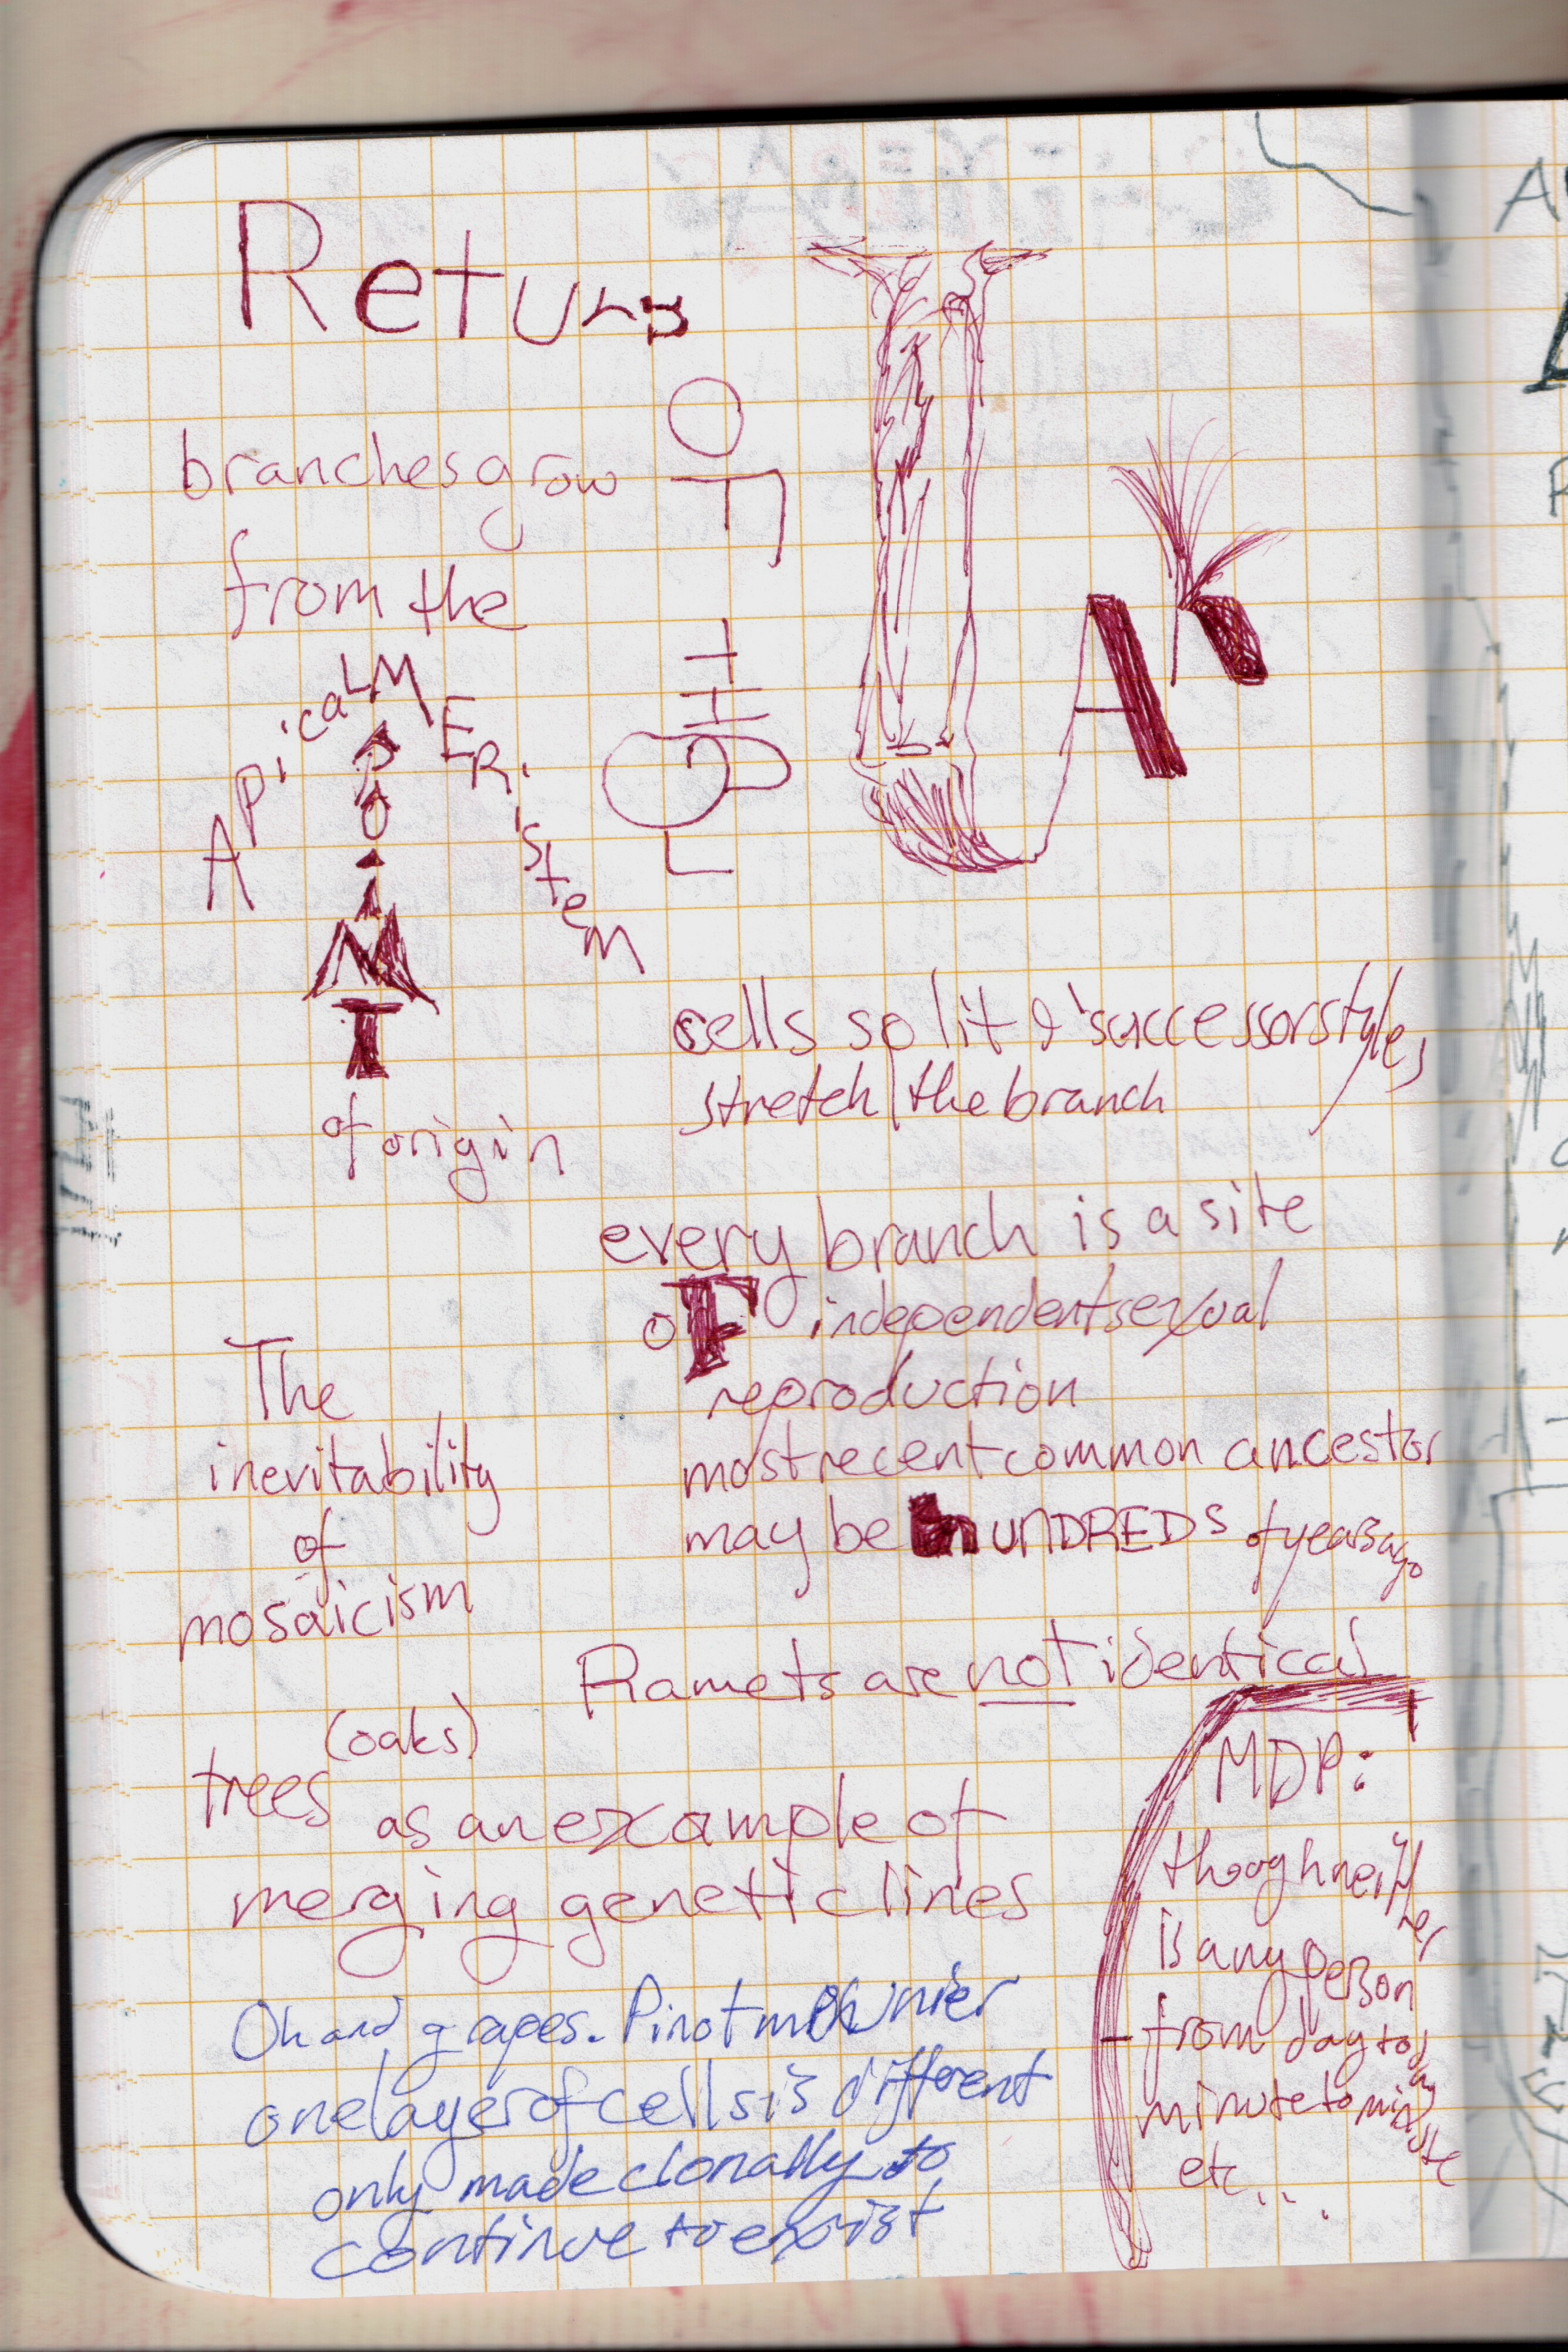 Return
OF
THE
OAK
branches grow
from the
APicaL MERistem
POINT
of origin
cells split & 'successorstyle,
stretch the branch
every branch is a site
oF independent sexual
reproduction
most recent common ancestor
may be hUNDREDS of years ago
The
inevitability
of
mosaicism
Ramets are not identical
(oaks)
trees as an example of
merging genetic lines
MDP:
though neither
is any person
from day to day
minute to minute
etc...
Oh and grapes. Pinot meunier
one layer of cells is different
only made clonally to
continue to exist